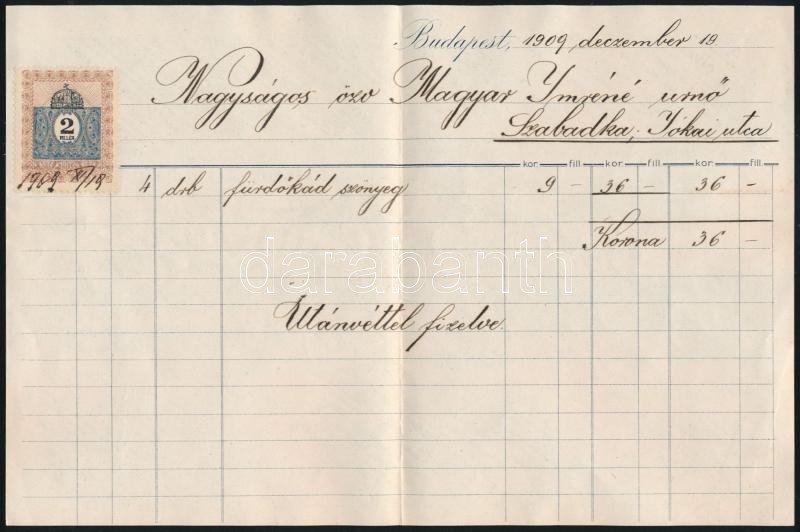 Budapest, 1909 deczember 19.
Nagyságos özv Magyar Imréné urnő
Szabadka, Jókai utca
2
FILLÉR
1909 XII/19
kor. fill. kor. fill. kor. fill.
4 drb fürdőkád szőnyeg 9 – 36 – 36 –
Korona 36 –
darabanth
Utánvéttel fizetve.